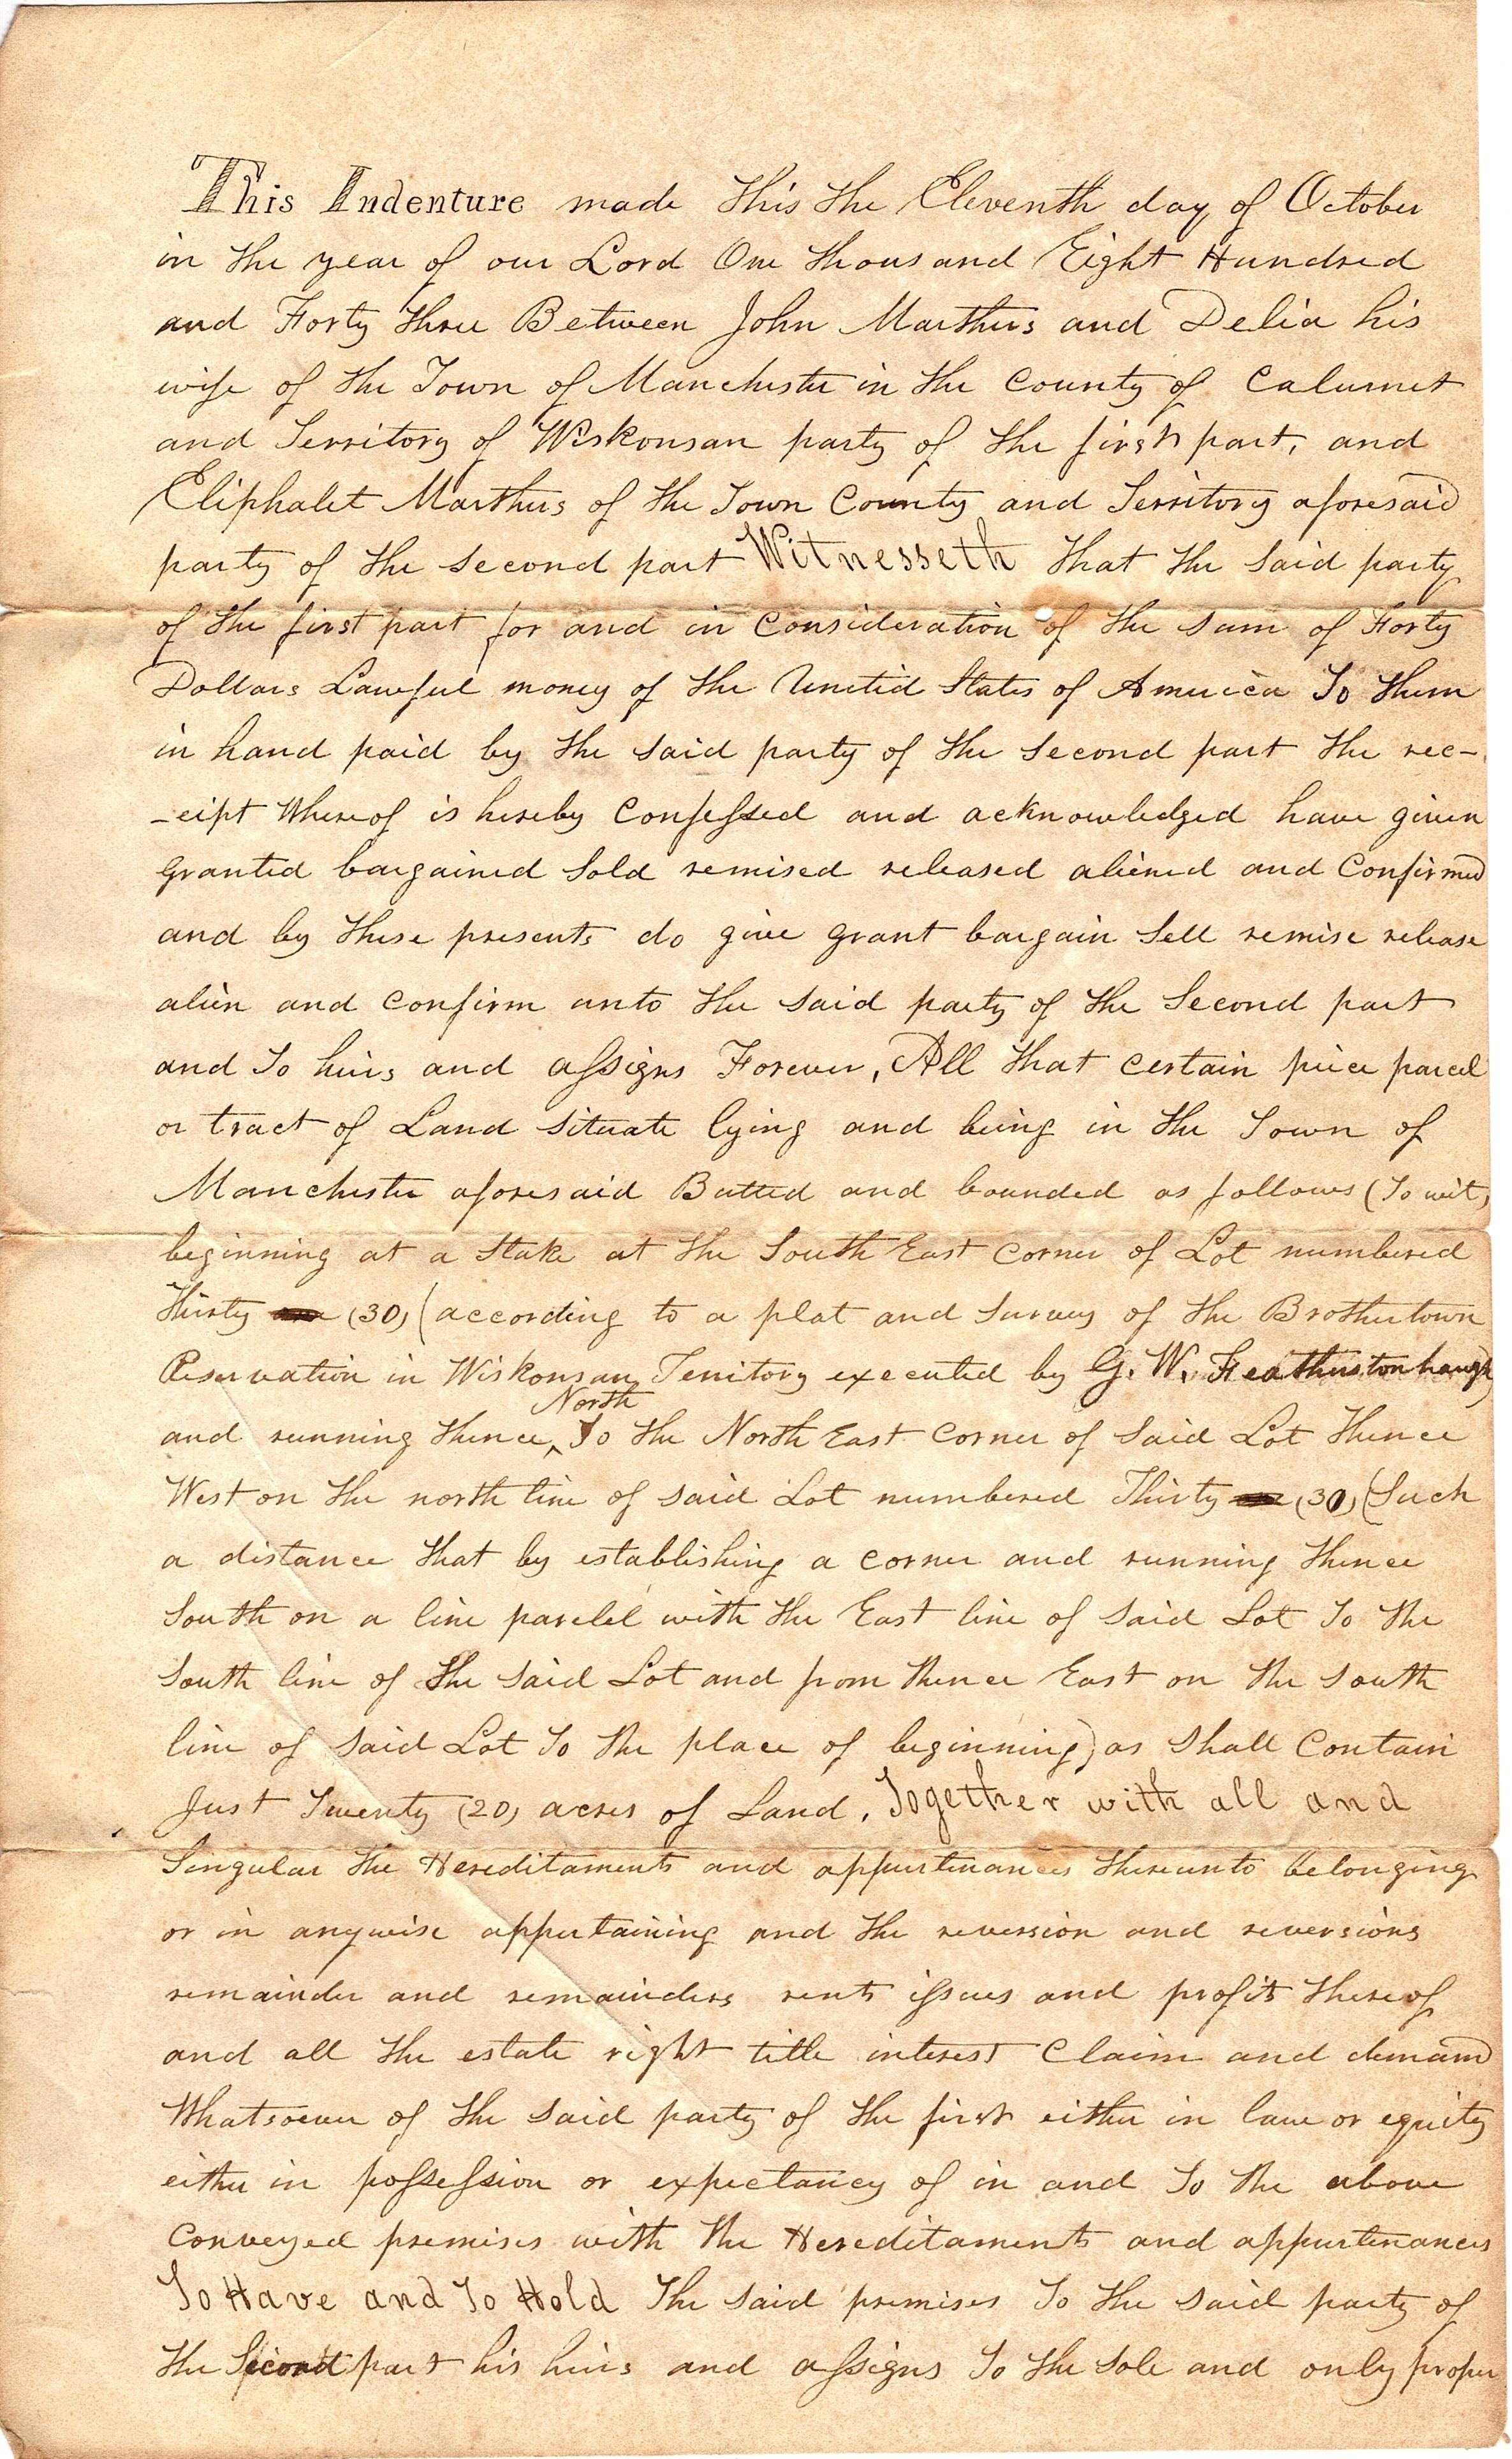 This Indenture made this the Eleventh day of October
in the year of our Lord One thousand Eight Hundred
and Forty three Between John Marthers and Delia his
wife of the Town of Manchester in the County of Calumet
and Territory of Wiskonsan party of the first part, and
Eliphalet Marthers of the Town County and Territory aforesaid
party of the second part Witnesseth that the said party
of the first part for and in Consideration of the sum of Forty
Dollars Lawful money of the United States of America To them
in hand paid by the said party of the second part the rec-
-eipt whereof is hereby Confessed and acknowledged have given
granted bargained Sold remised released aliened and Confirmed
and by these presents do give grant bargain Sell remise release
alien and confirm unto the said party of the Second part
and To heirs and assigns Forever, All that certain piece parcel
or tract of Land situate lying and being in the Town of
Manchester aforesaid Butted and bounded as follows (To wit)
beginning at a Stake at the South East corner of Lot numbered
Thirty (30) (according to a plat and Survey of the Brothertown
Reservation in Wiskonsan Territory executed by G. W. Featherstonhaugh)
North
and running thence ^ To the North East corner of Said Lot Thence
West on the north line of said Lot numbered Thirty (30) (Such
a distance that by establishing a corner and running thence
South on a line parelel with the East line of said Lot To the
South line of the said Lot and from thence East on the South
line of said Lot To the place of beginning) as Shall Contain
Just Twenty (20) acres of Land, Together with all and
Singular the Hereditaments and appurtenances thereunto belonging
or in anywise appertaining and the reversion and reversions
remainder and remainders rents issues and profits thereof
and all the estate right title interest Claim and demand
Whatsoever of the said party of the first either in law or equity
either in possession or expectancy of in and To the above
Conveyed premises with the Hereditaments and appurtenances
To Have and To Hold The said premises To the said party of
the Second part his heirs and assigns To the Sole and only proper